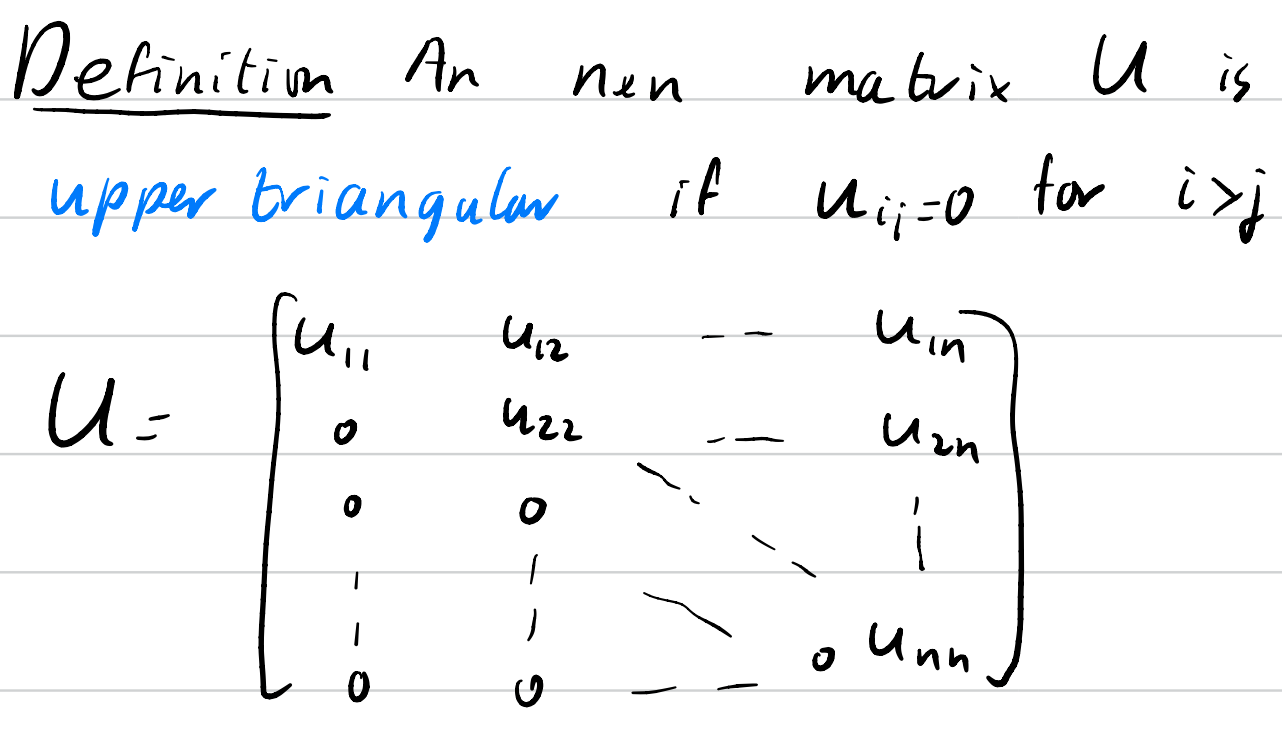 Definition An n×n matrix U is
upper triangular if u_{ij}=0 for i>j
U = [ u_{11} u_{12} -- u_{1n}
0 u_{22} -- u_{2n}
0 0
0 0 -- 0 u_{nn} ]